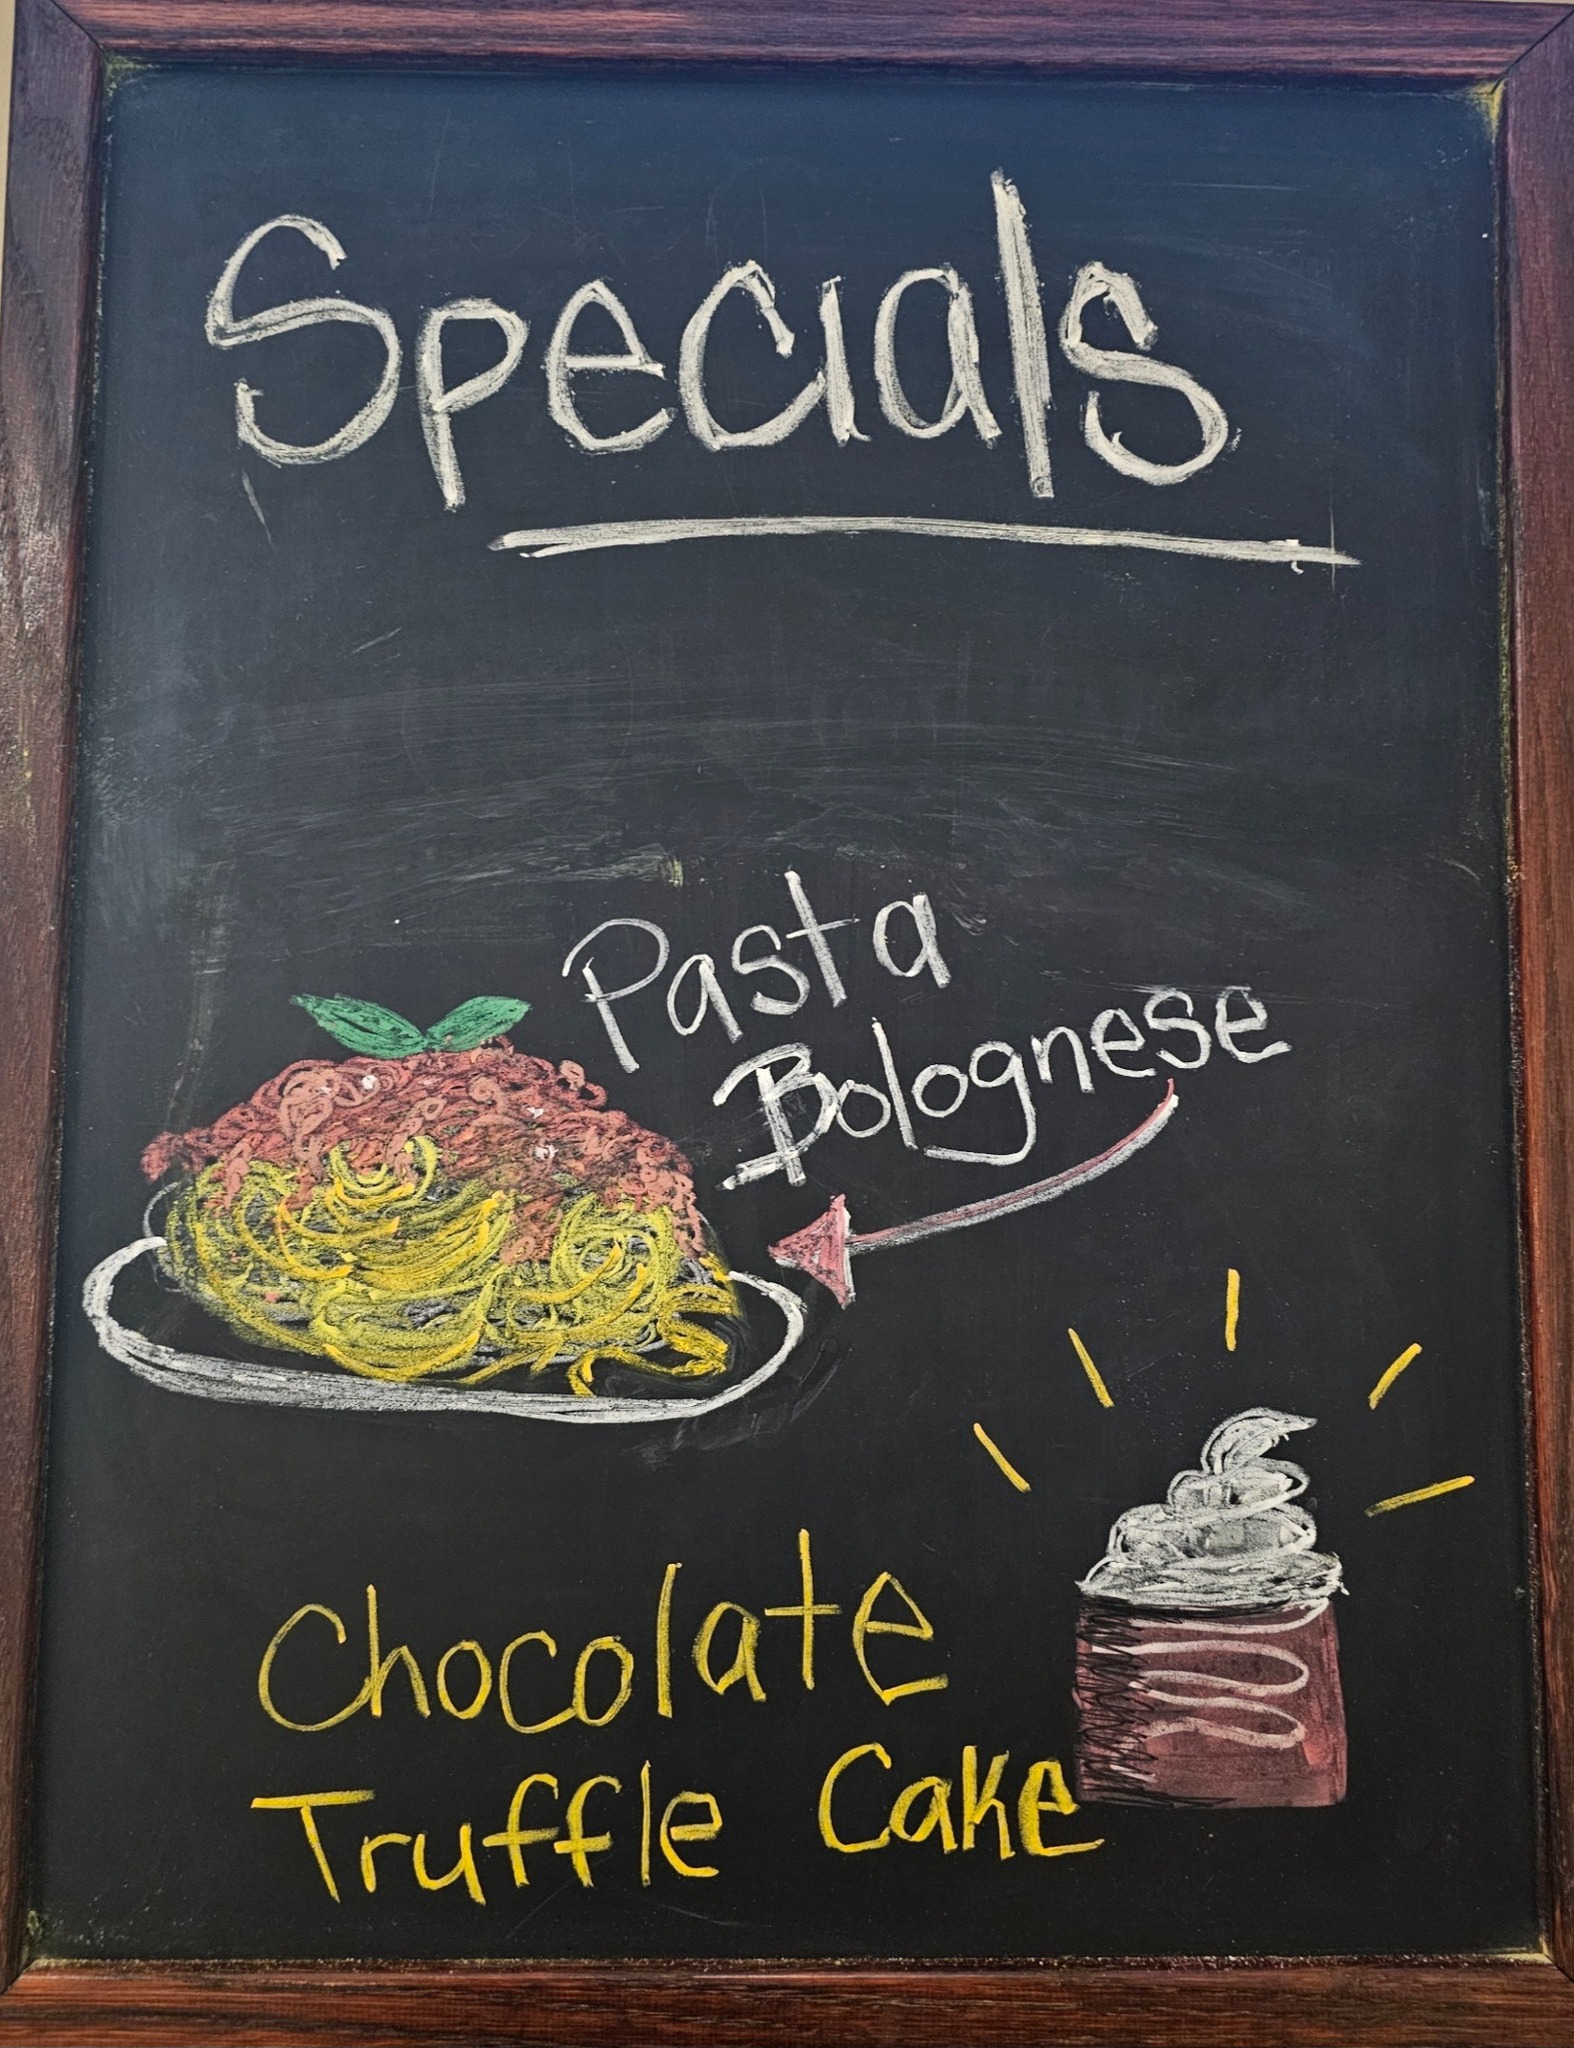 Specials
Pasta
Bolognese
Chocolate
Truffle Cake